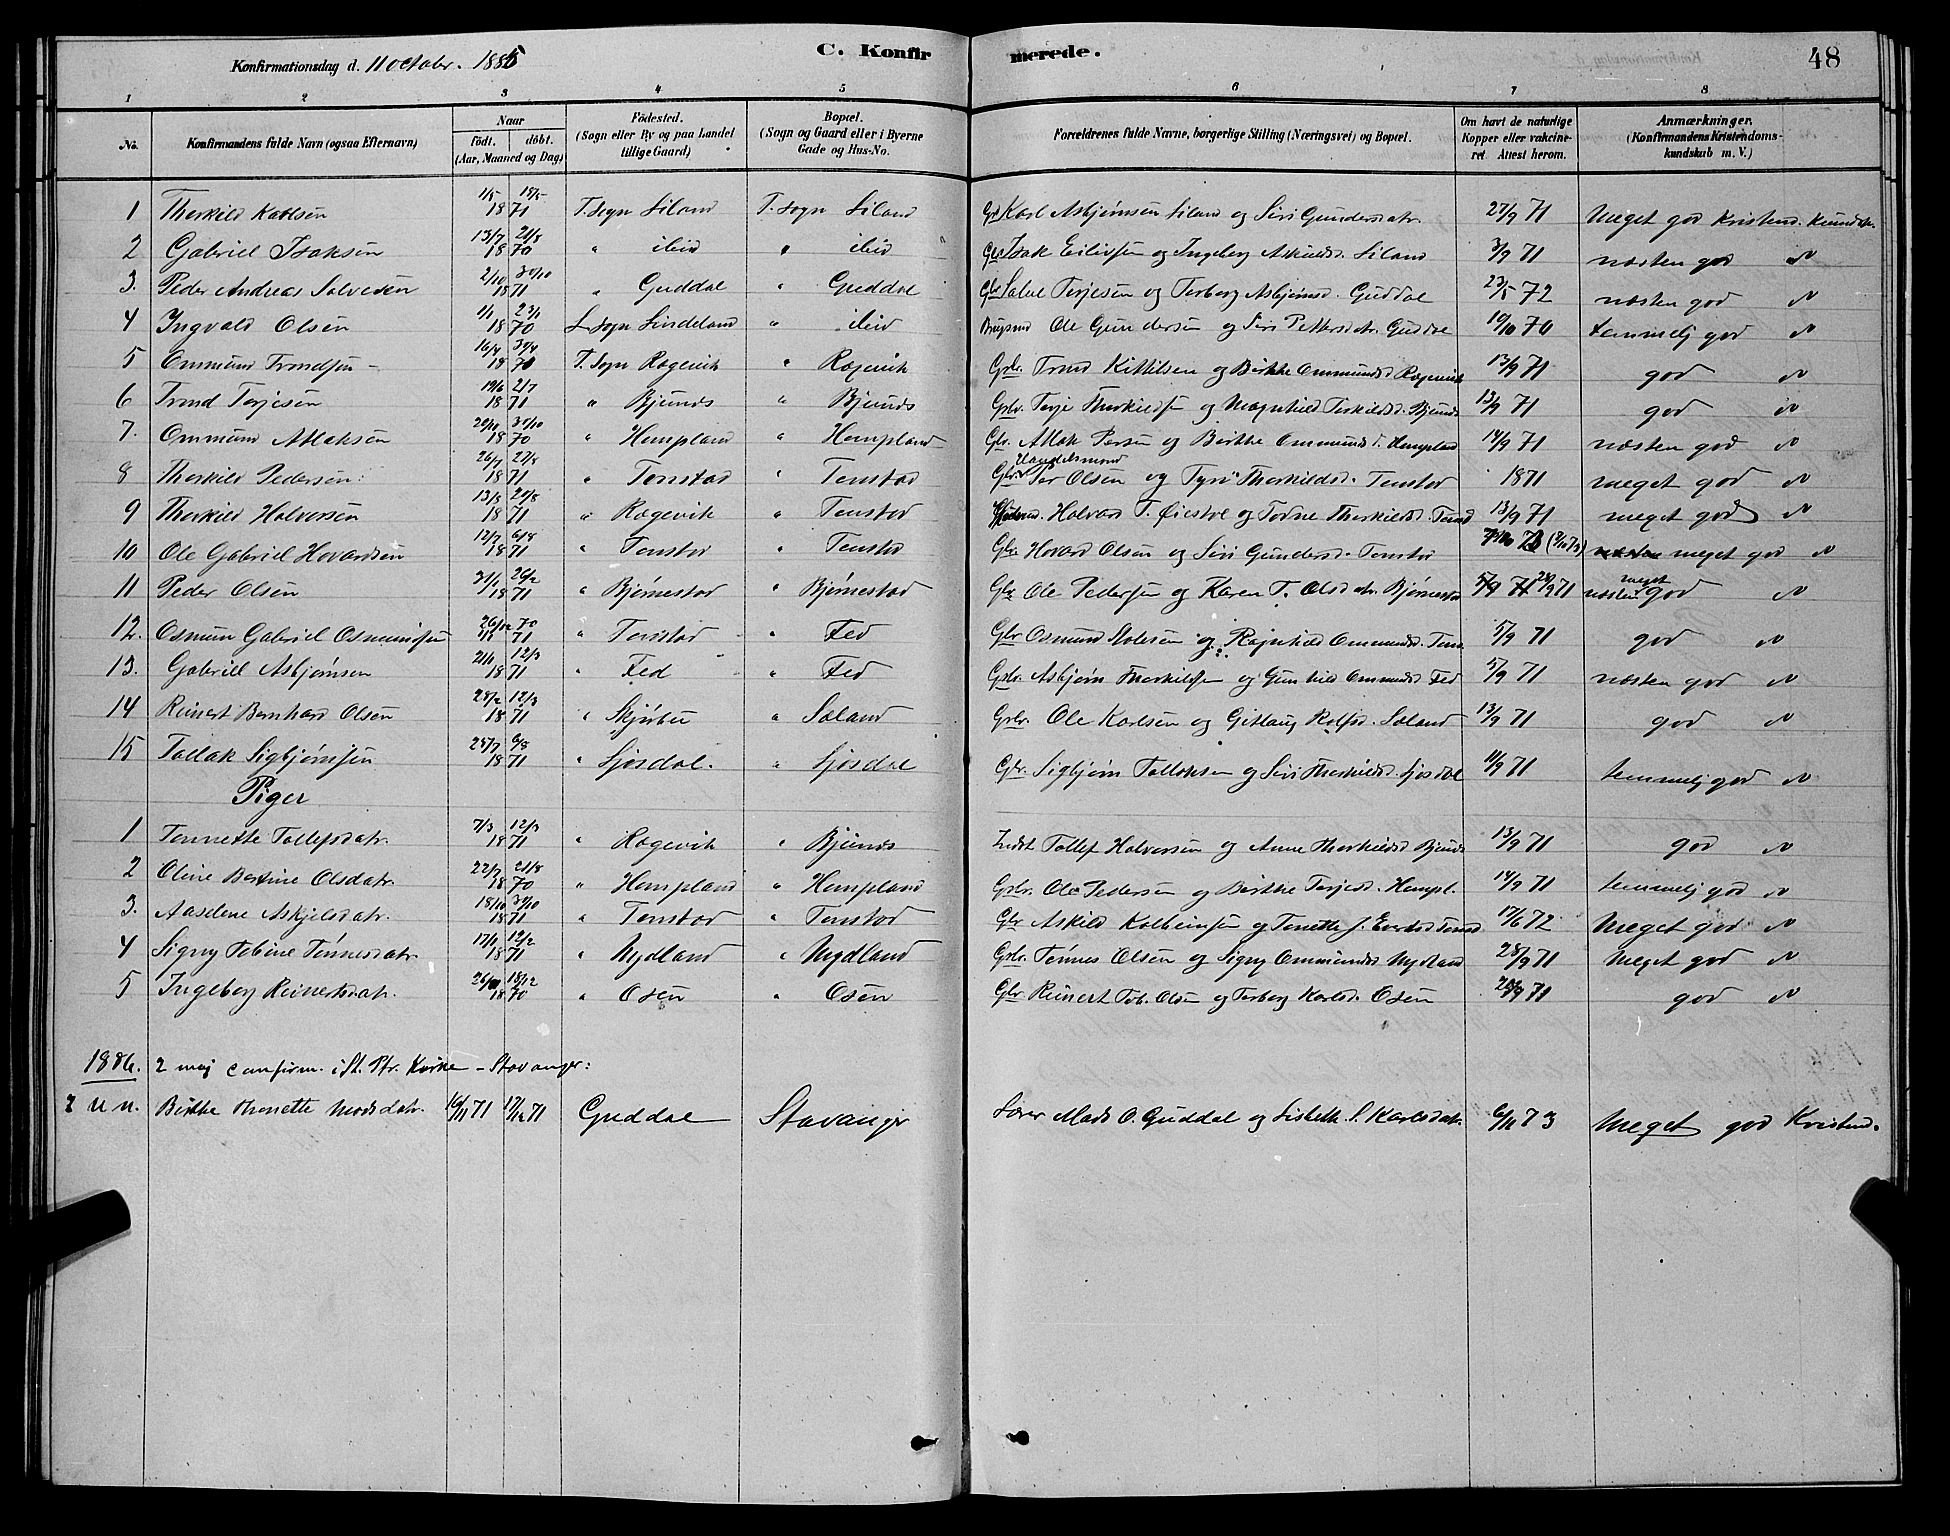 Konfirmationsdag d. 11 octobr. 1885
C. Konfirmerede.
48
1 2 3 4 5 6 7 8
No.
Konfirmandens fulde Navn (ogsaa Efternavn)
Naar født. døbt. (Aar, Maaned og Dag)
Fødested. (Sogn eller By og paa Landet tillige Gaard)
Bopæl. (Sogn og Gaard eller i Byerne Gade og Hus-No.
Forældrenes fulde Navne, borgerlige Stilling (Næringsvei) og Bopæl.
Om havt de naturlige Kopper eller vakcineret Attest herom.
Anmærkninger. (Konfirmandens Kristendomskundskab m. V.)
1 Therkild Karlsen 1/5 18/5 1871 T. Sogn Siland T. Sogn Siland Gbr Karl Asbjørnsen Siland og Siri Gundersdatr. 27/9 71 Meget god Kristend. Kundsk.
2 Gabriel Isaksen 13/7 21/8 1870 " ibid " ibid Gbr Isak Eilivsen og Ingeborg Askildsd. Siland 3/9 71 næsten god "
3. Peder Andreas Salvesen 2/10 30/10 1871 " Guddal " Guddal Gbr Salve Terjesen og Torborg Asbjørnsd. Guddal 23/5 72 næsten god "
4 Ingvald Olsen 1/1 23/1 1870 L. Sogn Lindeland " ibid Brugsmd Ole Gundersen og Siri Pettersdatr. Guddal 19/10 70 temmelig god "
5 Ommund Trondsen 16/4 30/4 1870 T. Sogn Røgevik " Røgevik Gbr. Trond Kittilsen og Birthe Ommundsd Røgevik 13/9 71 god "
6 Trond Terjesen 19/6 2/7 1871 " Bjunds " Bjunds Gbr. Terje Therkildsen og Magnhild Terkildsd. Bjunds 13/9 71 god "
7. Ommund Atlaksen 1870 " Hompland " Hompland Gbr. Atlak Persen og Birthe Ommundsd. Hompland 14/9 71 næsten god "
8 Therkild Pedersen 26/7 27/8 1871 " Tonstad " Tonstad Gbr. Handelsmand Per Olsen og Tyri Therkildsd. Tonstad 1871 meget god "
9 Therkild Halvorsen 13/8 20/8 1871 " Røgevik " Tonstad Halvor T. Øiestol og Todne Therkildsd. Tonst 13/9 71 meget god "
10 Ole Gabriel Hovardsen 12/7 6/8 1871 " Tonstad " Tonstad Gbr Hovard Olsen og Siri Gundersd. Tonstad meget god "
11 Peder Olsen 31/1 26/2 1871 " Bjørnestad " Bjørnestad Gbr Ole Pedersen og Karen T. Olsdatr. Bjørnestad 28/9 71 meget god "
12. Osmun Gabriel Osmundsen 26/12 70 71 " Tonstad " Fed Gbr Osmund Stolesen og Ragnhild Ommundsd. Tons. 5/9 71 god "
13. Gabriel Asbjørnsen 21/1 12/3 1871 " Fed " Fed Gbr. Asbjørn Therkildsen og Gunhild Ommundsd Fed 5/9 71 næsten god "
14 Reinert Bernhard Olsen 28/2 12/3 1871 " Skjørbu " Saland Gbr. Ole Karlsen og Gitlaug Rolfsd. Saland 13/9 71 god "
15 Tallak Sigbjørnsen 25/7 6/8 1871 " Sjøsdal. " Sjøsdal Gbr. Sigbjørn Tallaksen og Siri Therkildsd. Sjøsdal 11/9 71 temmelig god "
Piger
1 Tonnette Tollefsdatr. 7/3 12/3 1871 " Røgevik " Bjunds Indst Tollef Halvorsen og Anne Therkildsd Bjunds 13/9 71 god "
2 Oline Bertine Olsdatr. 22/7 21/8 1870 " Hompland " Hompland Gbr. Ole Pedersen og Birthe Terjesd. Hompl. 14/9 71 temmelig god "
3. Aaselene Askjelsdatr. 18/10 30/10 1871 " Tonstad " Tonstad Gbr Askild Kolbeinsen og Tonette J. Evertsd Tonst 17/6 72 Meget god "
4 Signy Tobine Tønnesdatr. 17/1 12/2 1871 " Nydland " Nydland Gbr. Tønnes Olsen og Signy Ommundsd Nydland 28/9 71 Meget god "
5 Ingeborg Reinertsdatr. 18/12 1870 " Osen " Osen Gbr Reinert Tob. Olsen og Torborg Karlsd. Osen 71 god "
1886. 2 maj confirm. i St. Ptr. Kirke – Stavanger:
Birthe Thonette Madsdatr. 16/11 71 17/12 71 Guddal Stavanger Lærer Mads O. Guddal og Lisbeth S. Karlsdatr. 6/11 73 Meget god Kristend.